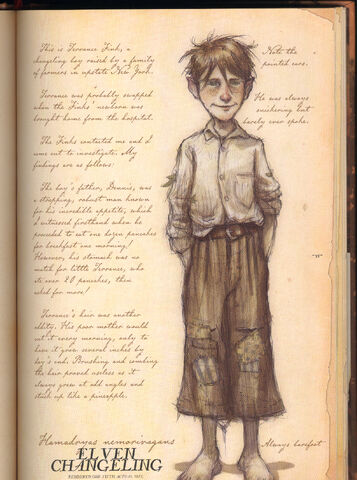 This is Terrance Fink, a
changeling boy raised by a family
of farmers in upstate New York.
Terrance was probably swapped
when the Finks' newborn was
brought home from the hospital.
The Finks contacted me and I
went out to investigate. My
findings are as follows:
The boy's father, Dennis, was
a strapping, robust man known
for his incredible appetite, which
I witnessed firsthand when he
proceeded to eat one dozen pancakes
for breakfast one morning!
However, his stomach was no
match for little Terrance, who
ate over 20 pancakes, then
asked for more!
Terrance's hair was another
oddity. His poor mother would
cut it every morning, only to
have it grow several inches by
day's end. Brushing and combing
the hair proved useless as it
always grew at odd angles and
stuck up like a pineapple.
Note the
pointed ears.
He was always
snickering but
rarely ever spoke.
Always barefoot
Hamadryas nemorivagans
ÆLVEN
CHANGELING